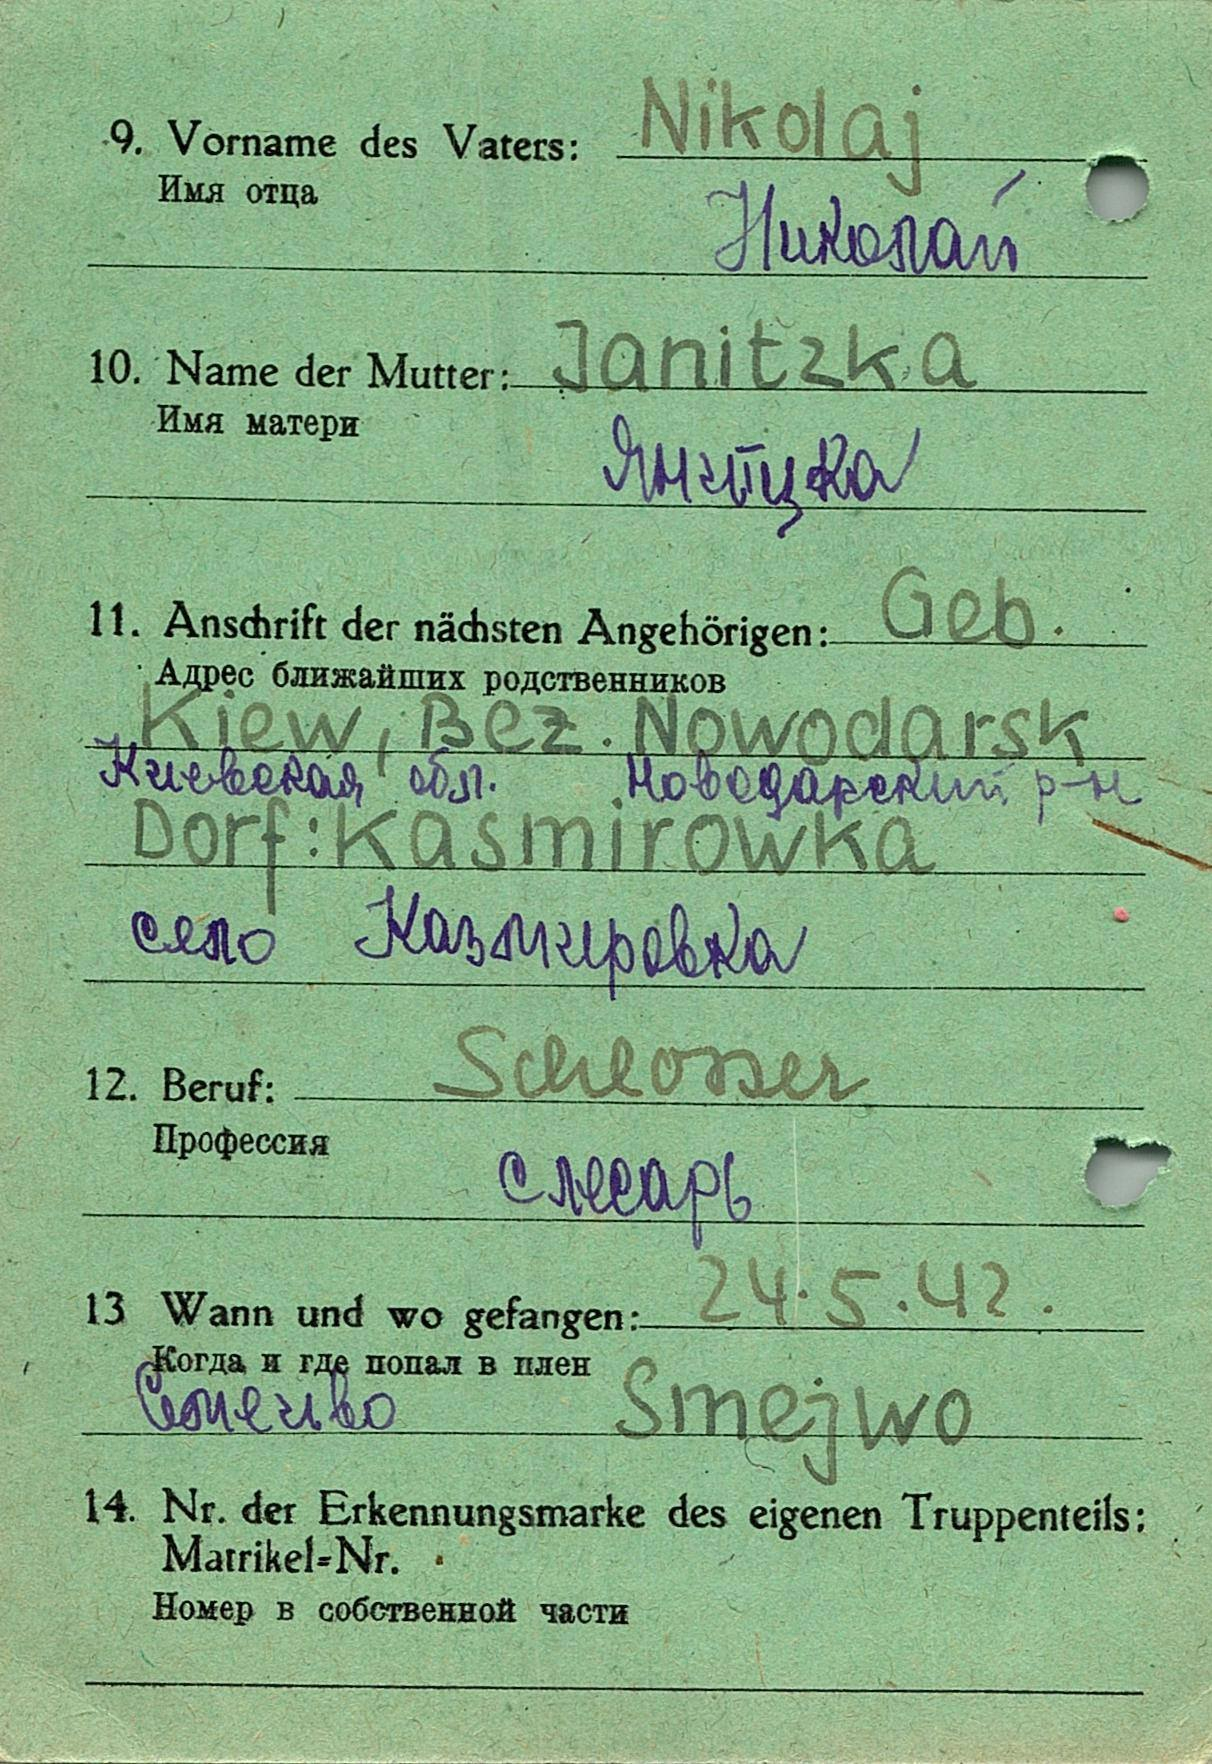 9. Vorname des Vaters: Nikolaj
Имя отца
Николай
10. Name der Mutter: Janitzka
Имя матери
Яницка
11. Anschrift der nächsten Angehörigen: Geb.
Адрес ближайших родственников
Kiew, Bez. Nowodarsk
Киевская обл. Новодарский р-н
Dorf: Kasmirowka
село Казмировка
12. Beruf: Schlosser
Профессия
слесарь
13 Wann und wo gefangen: 24.5.42.
Когда и где попал в плен
Smejwo
14. Nr. der Erkennungsmarke des eigenen Truppenteils:
Matrikel-Nr.
Номер в собственной части